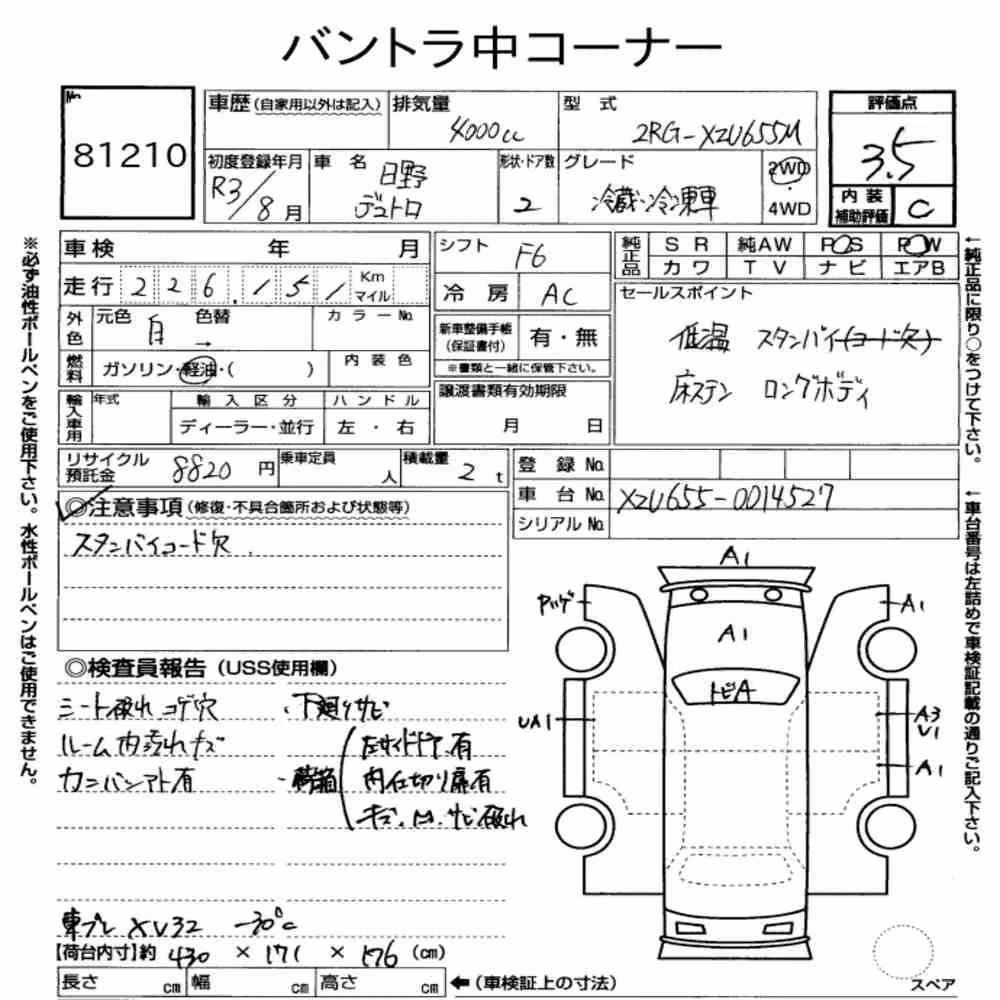 バントラ中コーナー
No.
81210
車歴(自家用以外は記入)
排気量
4000cc
型 式
2RG-XZU655M
評価点
3.5
初度登録年月
R3/8月
車 名
日野
デュトロ
形状・ドア数
2
グレード
冷蔵冷凍車
2WD
・
4WD
内 装
補助評価
C
車検 年 月
シフト
F6
純正品
SR
純AW
POS
POW
カワ
TV
ナビ
エアB
走行 226,151 Km
マイル
冷 房
AC
セールスポイント
低温 スタンバイ(コード欠)
床ステン ロングボディ
外色
元色 白 色替 →
カラーNo.
新車整備手帳
(保証書付)
有・無
※書類と一緒に保管下さい。
燃料
ガソリン・軽油・( )
内 装 色
譲渡書類有効期限
月 日
輸入車用
年式
輸 入 区 分
ディーラー・並行
ハ ン ド ル
左 ・ 右
リサイクル
預託金
8820 円
乗車定員
人
積載量
2 t
登 録 No.
車 台 No.
XZU655-0014527
シリアル No.
◎注意事項(修復・不具合箇所および状態等)
スタンバイコード欠
◎検査員報告(USS使用欄)
シート破れ コゲ穴
ルーム内汚れキズ
カンバンアト有
・下廻りサビ
・荷箱
左サイドドア有
内仕切り扉有
キズ、凹、サビ破れ
東プレ XV32 -30℃
【荷台内寸】約 430 × 171 × 176 (cm)
長さ cm
幅 cm
高さ cm
←(車検証上の寸法)
A1
A1
A1
トビA
UA1
A3
U1
A1
スペア
※必ず油性ボールペンをご使用下さい。水性ボールペンはご使用できません。
←純正品に限り○をつけて下さい。
←車台番号は左詰めで車検証記載の通りご記入下さい。